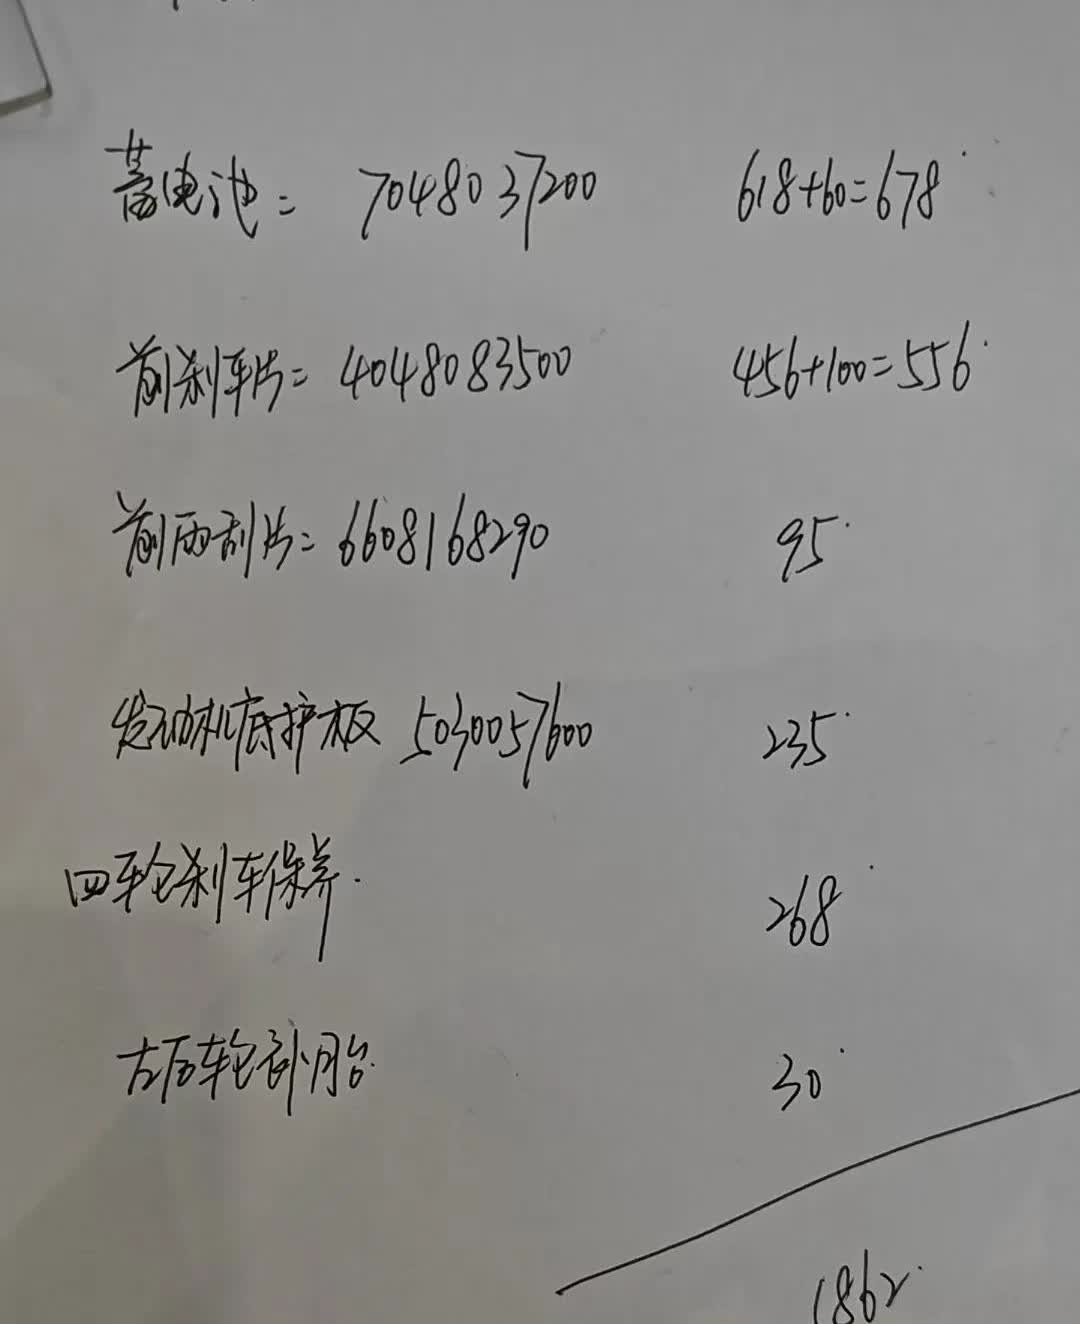 蓄电池= 7048037200 618+60=678
前刹车片= 4048083500 456+100=556
前雨刮片= 6608168290 95
发动机底护板 5030057600 235
四轮刹车保养. 268
左后轮补胎 30
1862